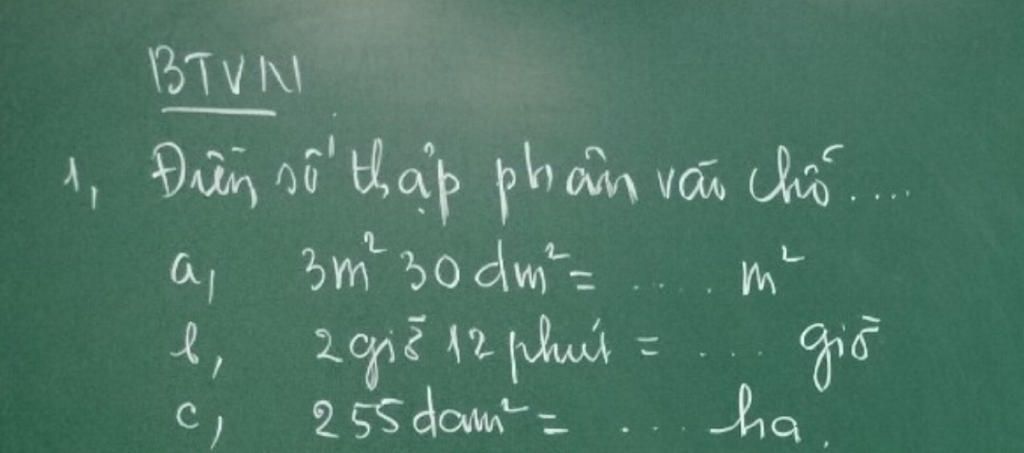 BTVN
1, Điền số thập phân vào chỗ....
a, 3m² 30dm² = ..... m²
b, 2 giờ 12 phút = .... giờ
c, 255dam² = .... ha.